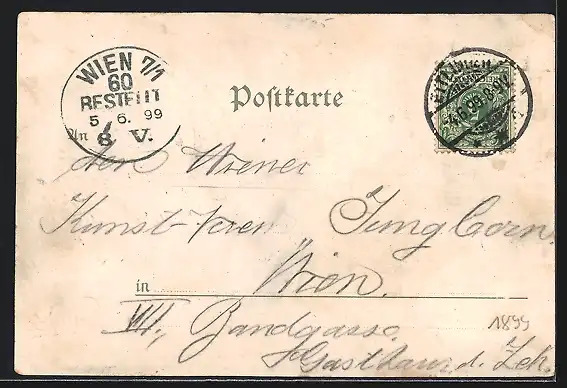 WIEN 7/1
60
BESTELLT
5 6. 99
8 V.
Postkarte
An
den Wiener
Kunst-Verein Jung
in Wien.
VII, Bandgasse
Gasthaus d.
1899